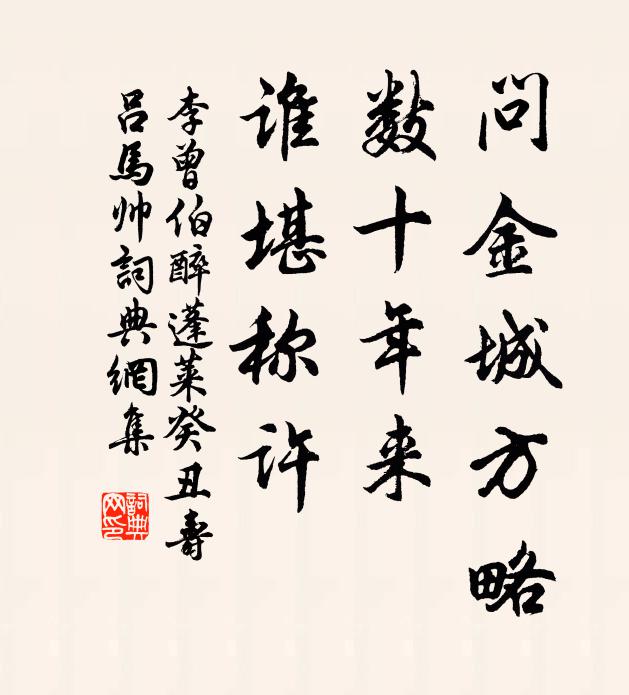 问金城方略
数十年来
谁堪称许
李曾伯醉蓬莱癸丑寿
吕马帅詞典網集
詞典
网印